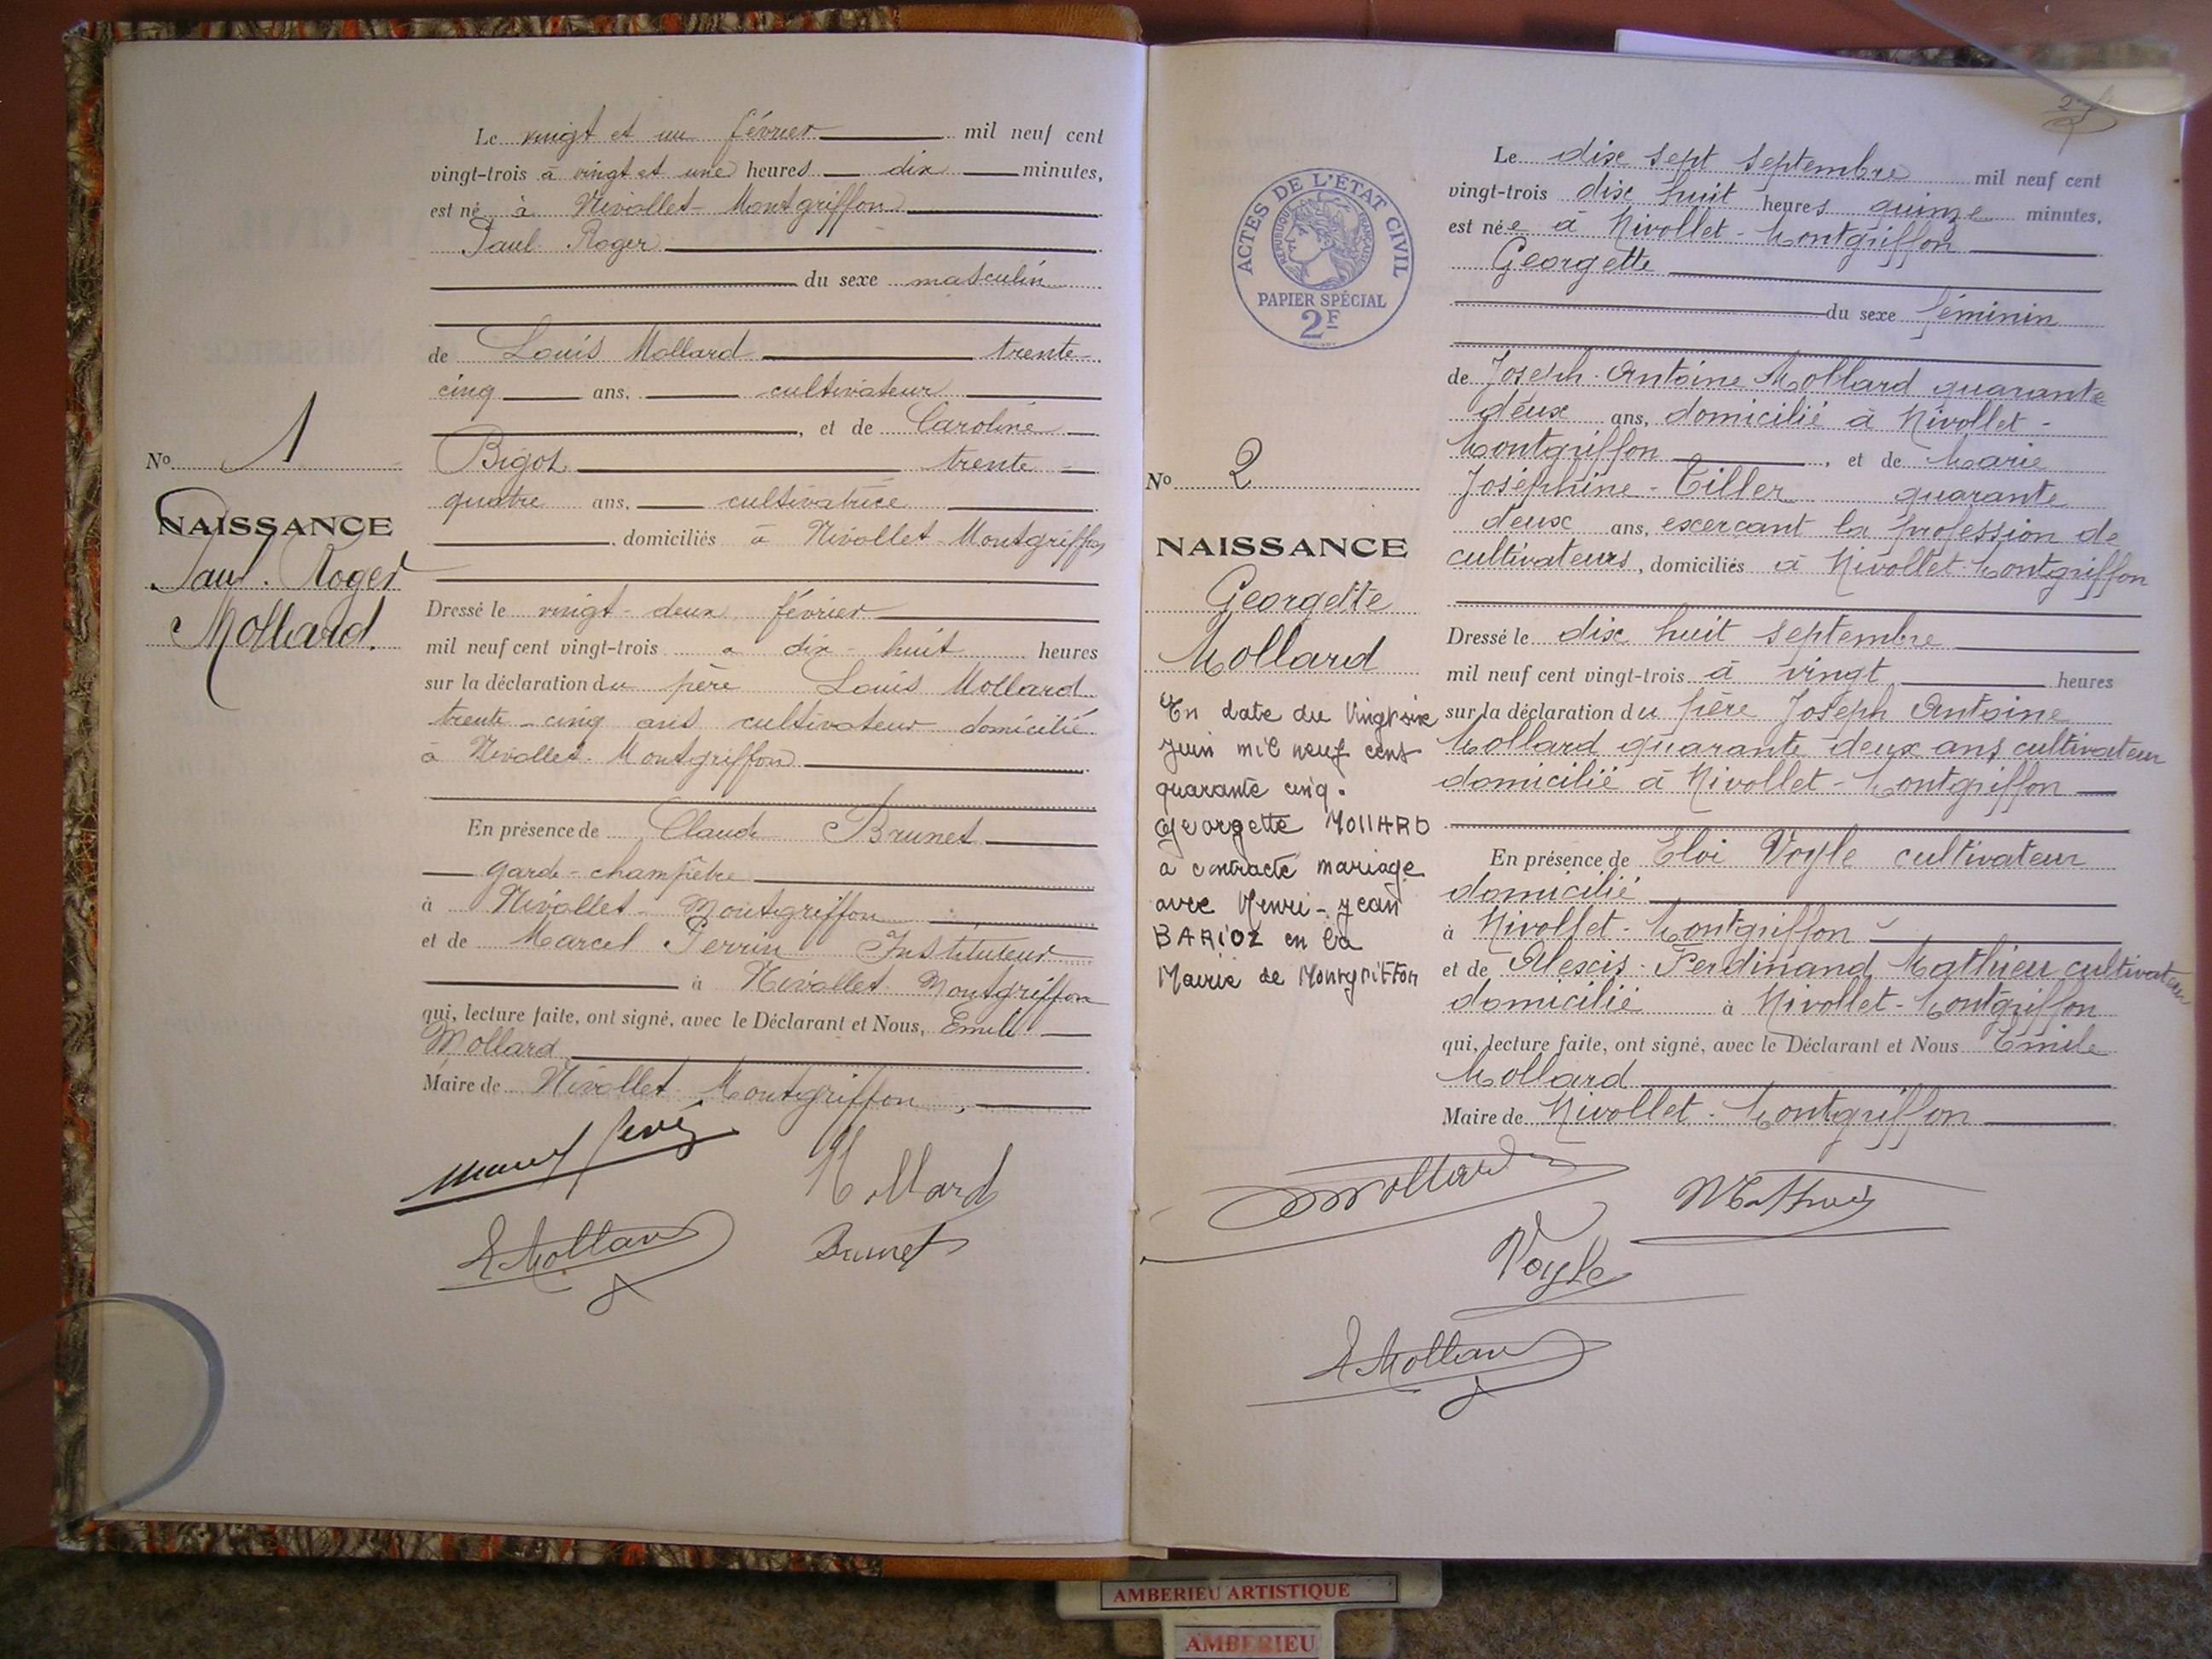 Le vingt et un février mil neuf cent
vingt-trois à vingt et une heures dix minutes,
est né à Nivollet-Montgriffon
Paul Roger
du sexe masculin
de Louis Mollard trente
cinq ans, cultivateur
, et de Caroline
Bigot trente
quatre ans, cultivatrice
, domiciliés à Nivollet-Montgriffon
No 1
NAISSANCE
Paul. Roger
Mollard.
Dressé le vingt-deux février
mil neuf cent vingt-trois à dix-huit heures
sur la déclaration du père Louis Mollard
trente-cinq ans cultivateur domicilié
à Nivollet-Montgriffon
En présence de Claude Brunet
garde-champêtre
à Nivollet-Montgriffon
et de Marcel Perrin Instituteur
à Nivollet-Montgriffon
qui, lecture faite, ont signé, avec le Déclarant et Nous, Emile
Mollard
Maire de Nivollet-Montgriffon,
Mollard
E Mollard
Brunet
ACTES DE L'ÉTAT CIVIL
RÉPUBLIQUE FRANÇAISE
PAPIER SPÉCIAL
2F
Le dix sept septembre mil neuf cent
vingt-trois dix huit heures quinze minutes,
est née à Nivollet-Montgriffon
Georgette
du sexe féminin
de Joseph-Antoine Mollard quarante
deux ans, domicilié à Nivollet-
Montgriffon, et de Marie
Joséphine-Tiller quarante
deux ans, exerçant la profession de
cultivateurs, domiciliés à Nivollet-Montgriffon
No 2
NAISSANCE
Georgette
Mollard
En date du Vingt six
Juin mil neuf cent
quarante cinq.
Georgette MOLLARD
a contracté mariage
avec Henri-Jean
BARIOZ en la
Mairie de Montgriffon
Dressé le dix huit septembre
mil neuf cent vingt-trois à vingt heures
sur la déclaration du père Joseph Antoine
Mollard quarante deux ans cultivateur
domicilié à Nivollet-Montgriffon
En présence de Eloi Voyle cultivateur
domicilié
à Nivollet-Montgriffon
et de Alexis-Ferdinand Mathieu cultivateur
domicilié à Nivollet-Montgriffon
qui, lecture faite, ont signé, avec le Déclarant et Nous Emile
Mollard
Maire de Nivollet-Montgriffon
Mollard
Mathieu
Voyle
E Mollard
AMBERIEU ARTISTIQUE
AMBERIEU